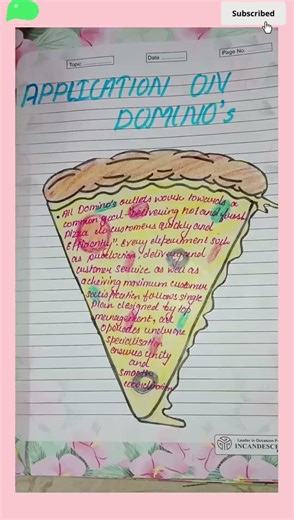 Subscribed
Page No.
Topic
Date
APPLICATION ON
DOMINO's
• All Domino's outlets work towards a
common goal "delivering hot and fresh
Pizza to customers quickly and
Efficiently". Every department such
as production, delivery and
customer service as well as
achieving maximum customer
satisfaction follows single
Plan designed by top
management, all
operates under one
specialisation
ensures unity
and
smooth
coordination
Leader in Occasion P
INCANDESCE